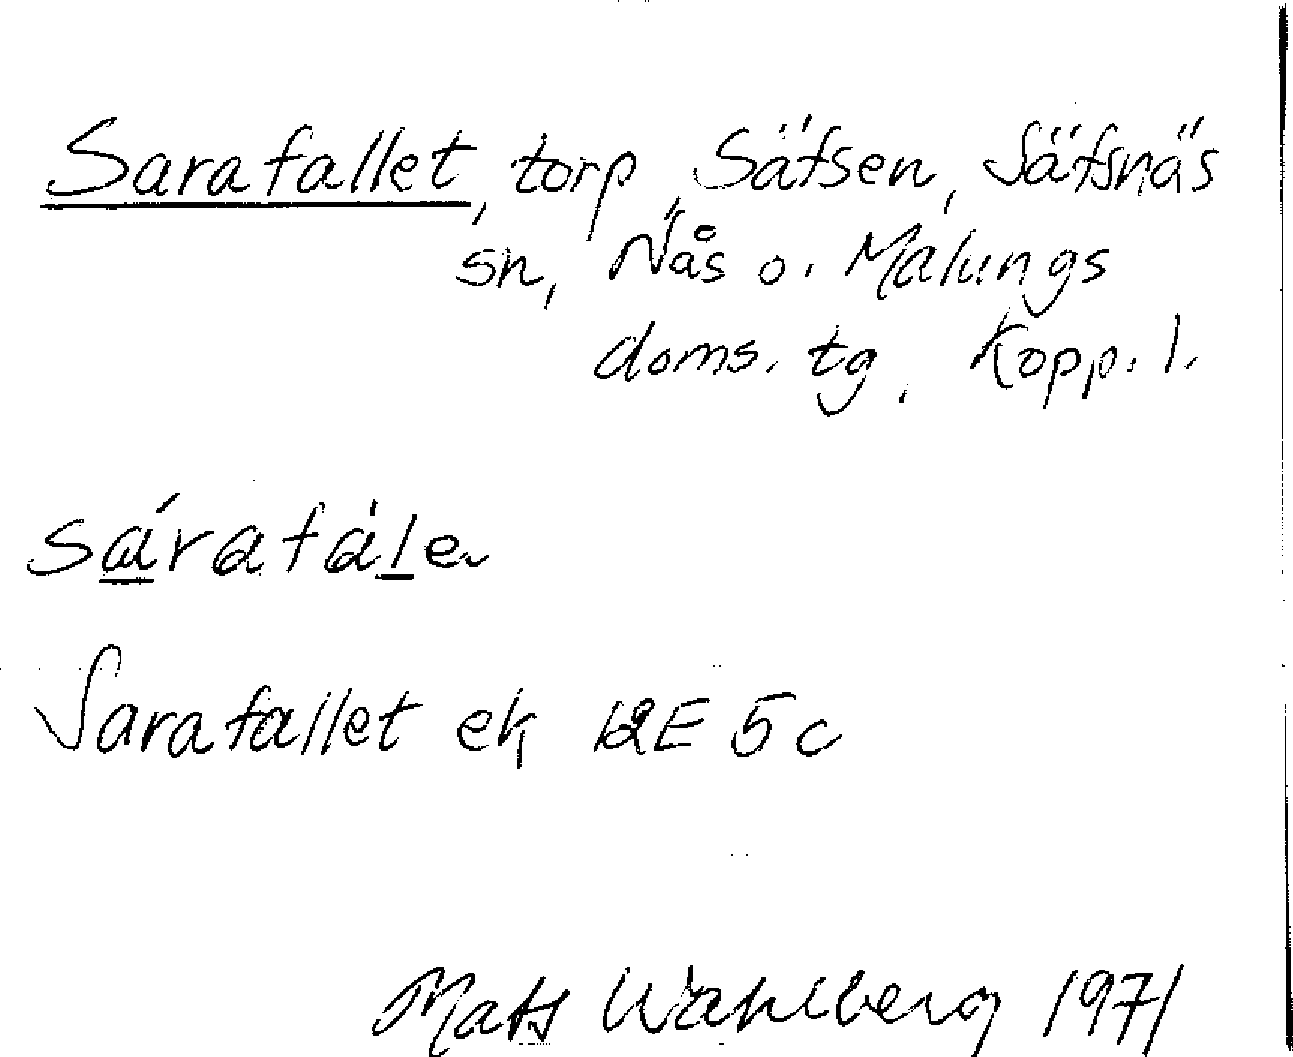 Sarafallet, torp, Säfsen, Säfsnäs
sn, Nås o. Malungs
doms. tg. Kopp. l.
sárafàle
Sarafallet ek 12E 5c
Mats Wahlberg 1971